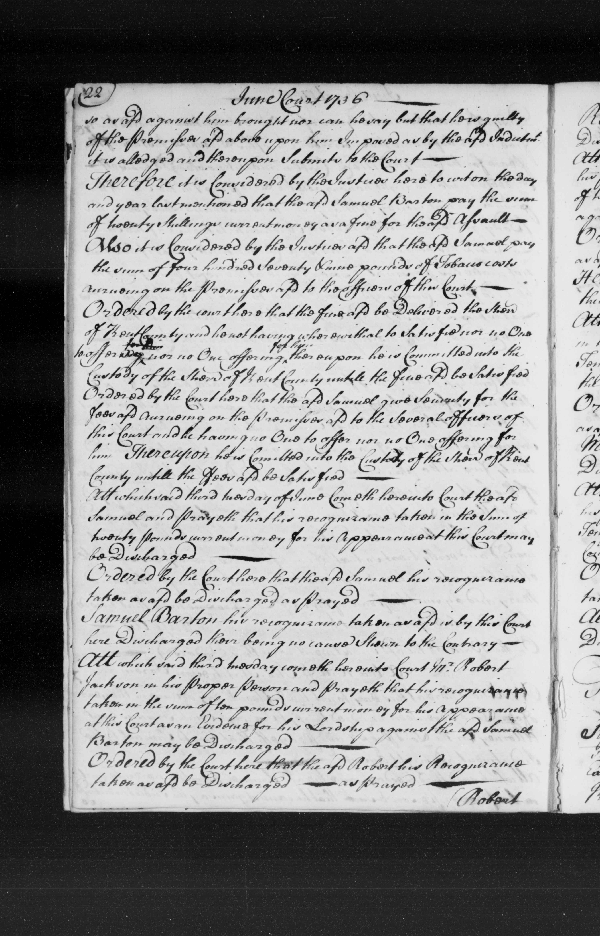 22
June Court 1736
so as afd against him brought nor can he say but that he is guilty
of the Premisses afd above upon him Imposed as by the afd Indictmt
it is alledged and thereupon Submits to the Court
Therefore it is Considered by the Justices here to wit on the day
and year last mentioned that the afd Samuel Barton pay the sum
of twenty Shillings current money as a fine for the afd Assault
Also it is Considered by the Justices afd that the afd Samuel pay
the sum of four hundred Seventy & nine pounds of Tobacco costs
accrueing on the Premisses afd to the officers of this Court
Ordered by the court here that the fine afd be Delivered the Sheri
of Kent County and he not having wherewithal to Satisfied nor no One
to offer for nor no One offering for him thereupon he is Committed into the
Custody of the Sheri of Kent County untill the fine afd be Satisfied
Ordered by the Court here that the afd Samuel give Security for the
fees afd accrueing on the Premisses afd to the Several officers of
this Court and he having no One to offer nor no One offering for
him Thereupon he is Comitted into the Custody of the Sheri of Kent
County untill the ffees afd be Satisfied
Att which said third tuesday of June Cometh hereinto Court the afd
Samuel and Prayeth that his recognizance taken in the Sum of
twenty Pounds current money for his Appearance at this Court may
be Discharged
Ordered by the Court here that the afd Samuel his recognizance
taken as afd be Discharged as Prayed
Samuel Barton his recognizance taken as afd is by this Court
here Discharged their being no cause Shewn to the Contrary
Att which said third tuesday cometh hereinto Court Mr. Robert
Jackson in his Proper Person and Prayeth that his recognizance
taken in the sum of ten pounds current money for his Appearance
at this Court as an Evidence for his Lordship against the afd Samuel
Barton may be Discharged
Ordered by the Court here that the afd Robert his Recognizance
taken as afd be Discharged as Prayed
Robert